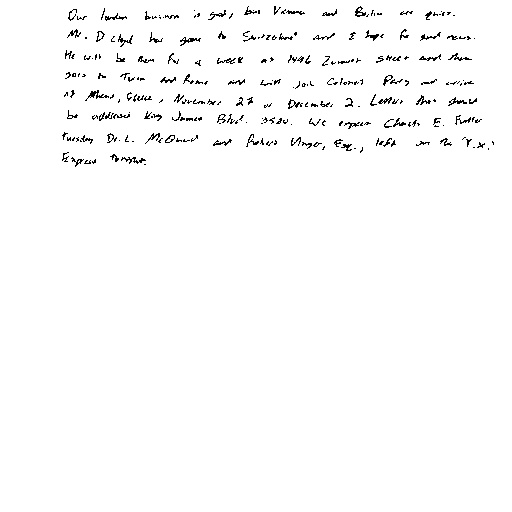 Our london business is good, but Vienna and Berlin are quiet.
Mr. D. Lloyd has gone to Switzerland and I hope for good news.
He will be there for a week at 1496 Zermott Street and then
goes to Turin and Rome and will join Colonel Parry and arrive
at Athens, Greece, November 27 or December 2. Letters there should
be addressed King James Blvd. 3580. We expect Charles E. Fuller
Tuesday. Dr. L. McQuaid and Robert Unger, Esq., left on the "Y.X."
Express tonight.